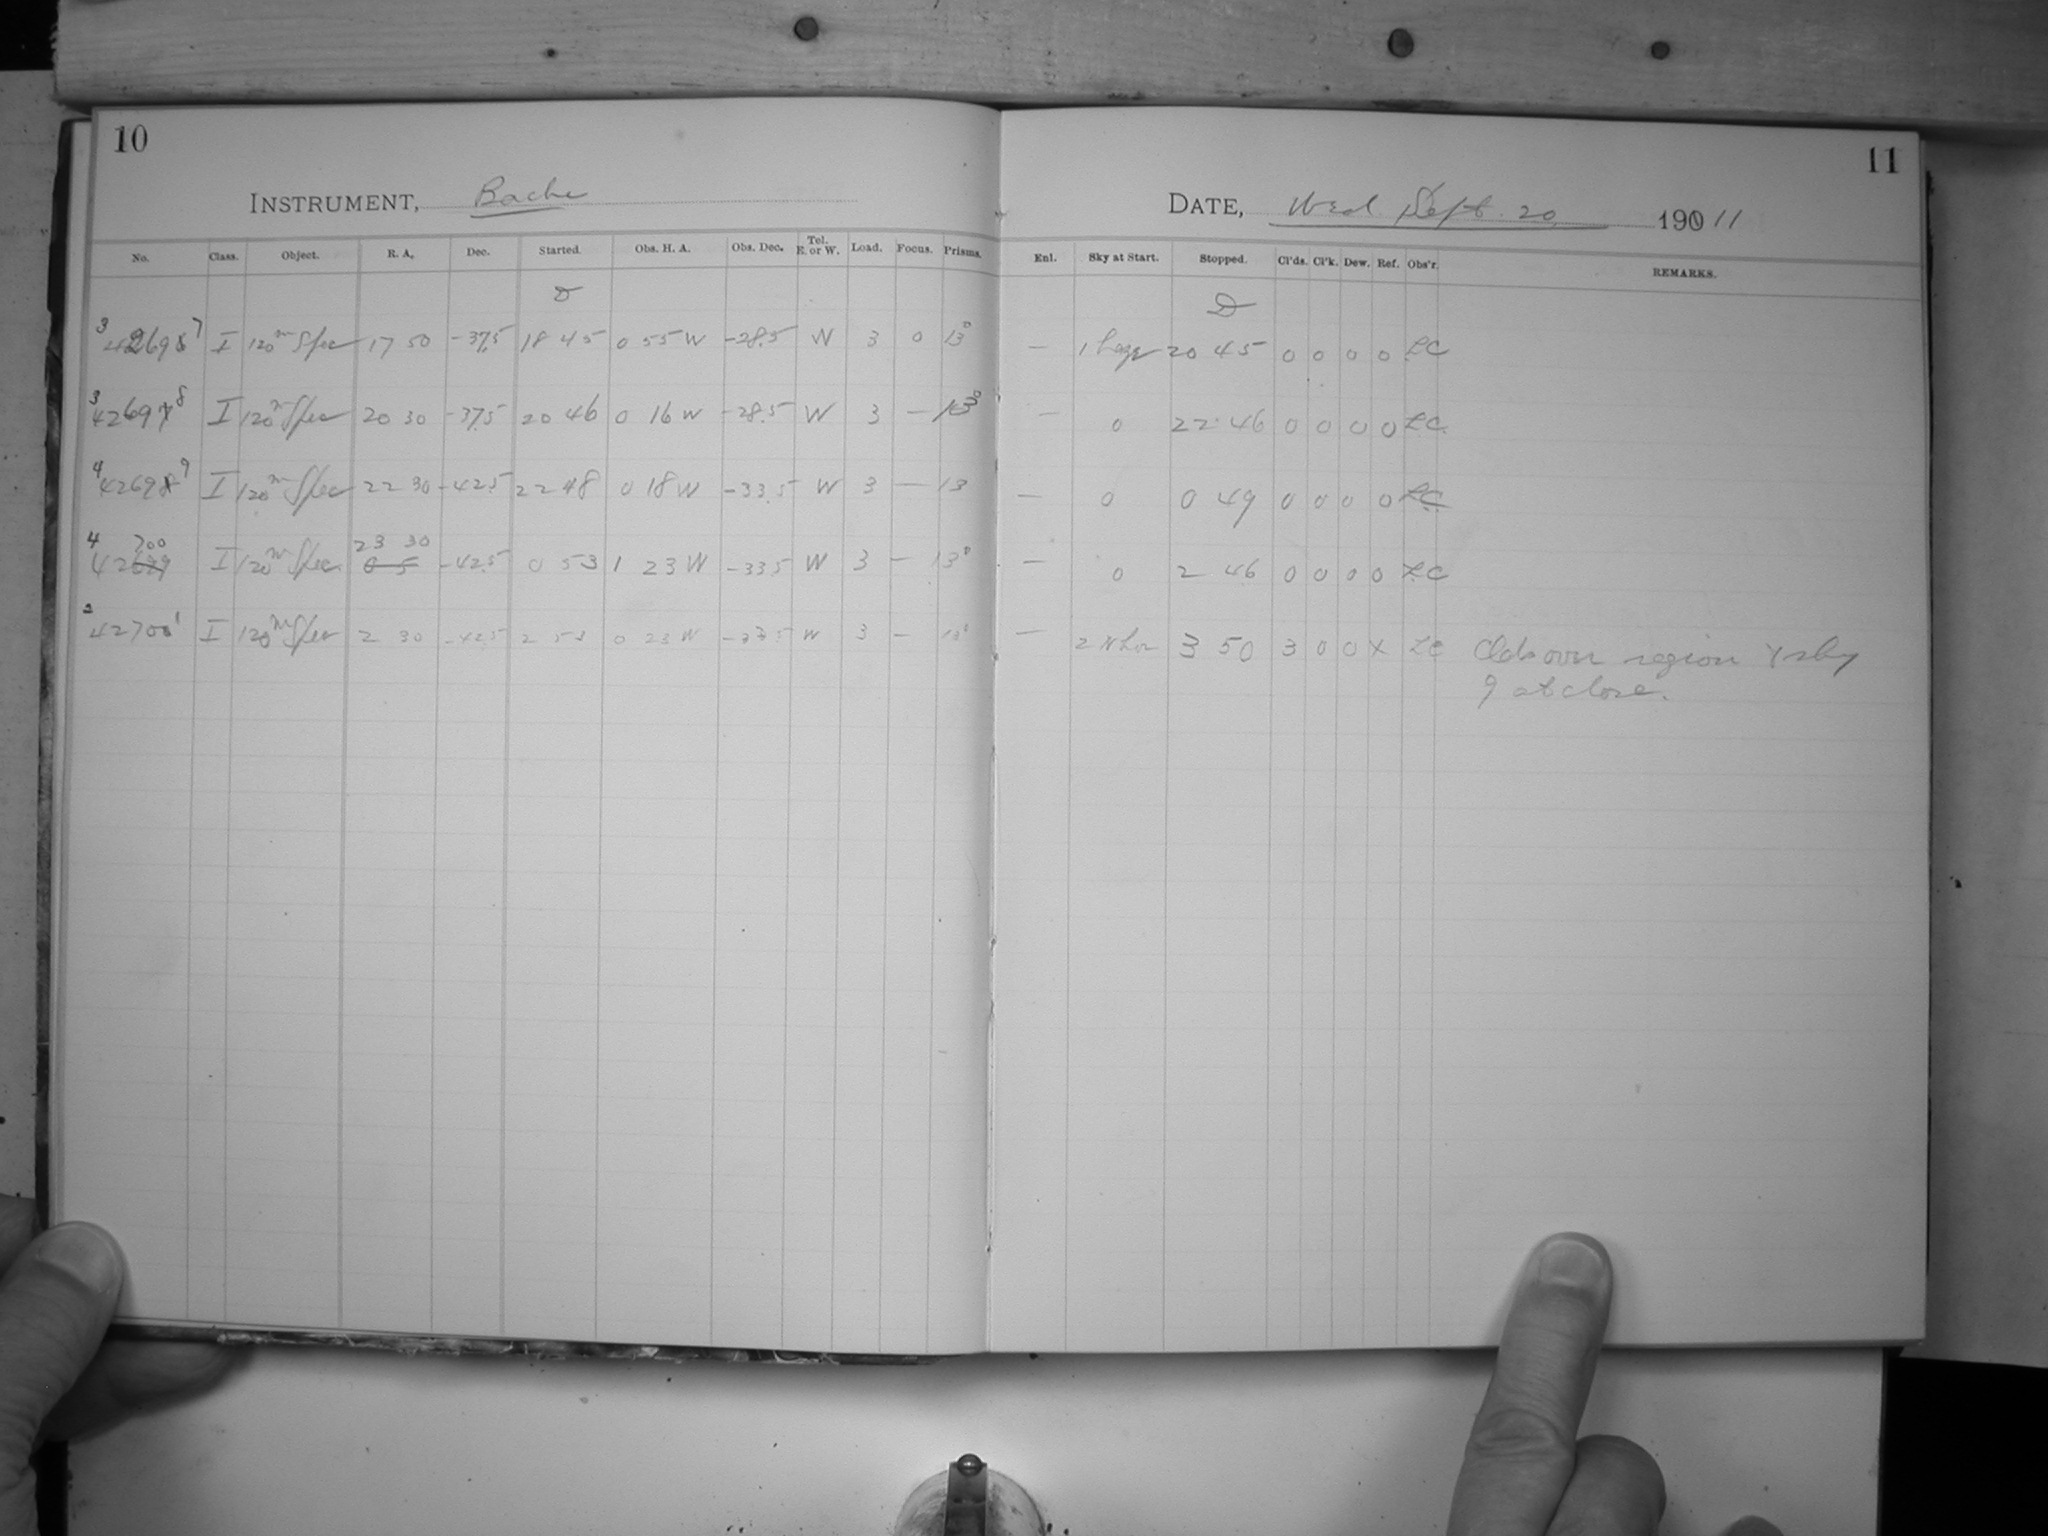 10
INSTRUMENT, Bache
No. Class. Object. R. A. Dec. Started. Obs. H. A. Obs. Dec. Tel. E. or W. Load. Focus. Prisms.
D
3 42697 I 120m Spec 17 50 -37.5 18 45 0 55 W -28.5 W 3 0 13°
3 42698 I 120m Spec 20 30 -37.5 20 46 0 16 W -28.5 W 3 — 13°
4 42699 I 120m Spec 22 30 -42.5 22 48 0 18 W -33.5 W 3 — 13
4 42700 I 120m Spec 23 30 -42.5 0 53 1 23 W -33.5 W 3 — 13°
2 42701 I 120m Spec 2 30 -42.5 2 53 0 23 W W 3 — 13°
11
DATE, Wed Sept. 20 1911
Enl. Sky at Start. Stopped. Cl'ds. Cl'k. Dew. Ref. Obs'r. REMARKS.
D
— 1 haze 20 45 0 0 0 0 LC
— 0 22 46 0 0 0 0 LC
— 0 0 49 0 0 0 0 LC
— 0 2 46 0 0 0 0 LC
— 2 N hor 3 50 3 0 0 X LC Clds over region & sky
9 at close.